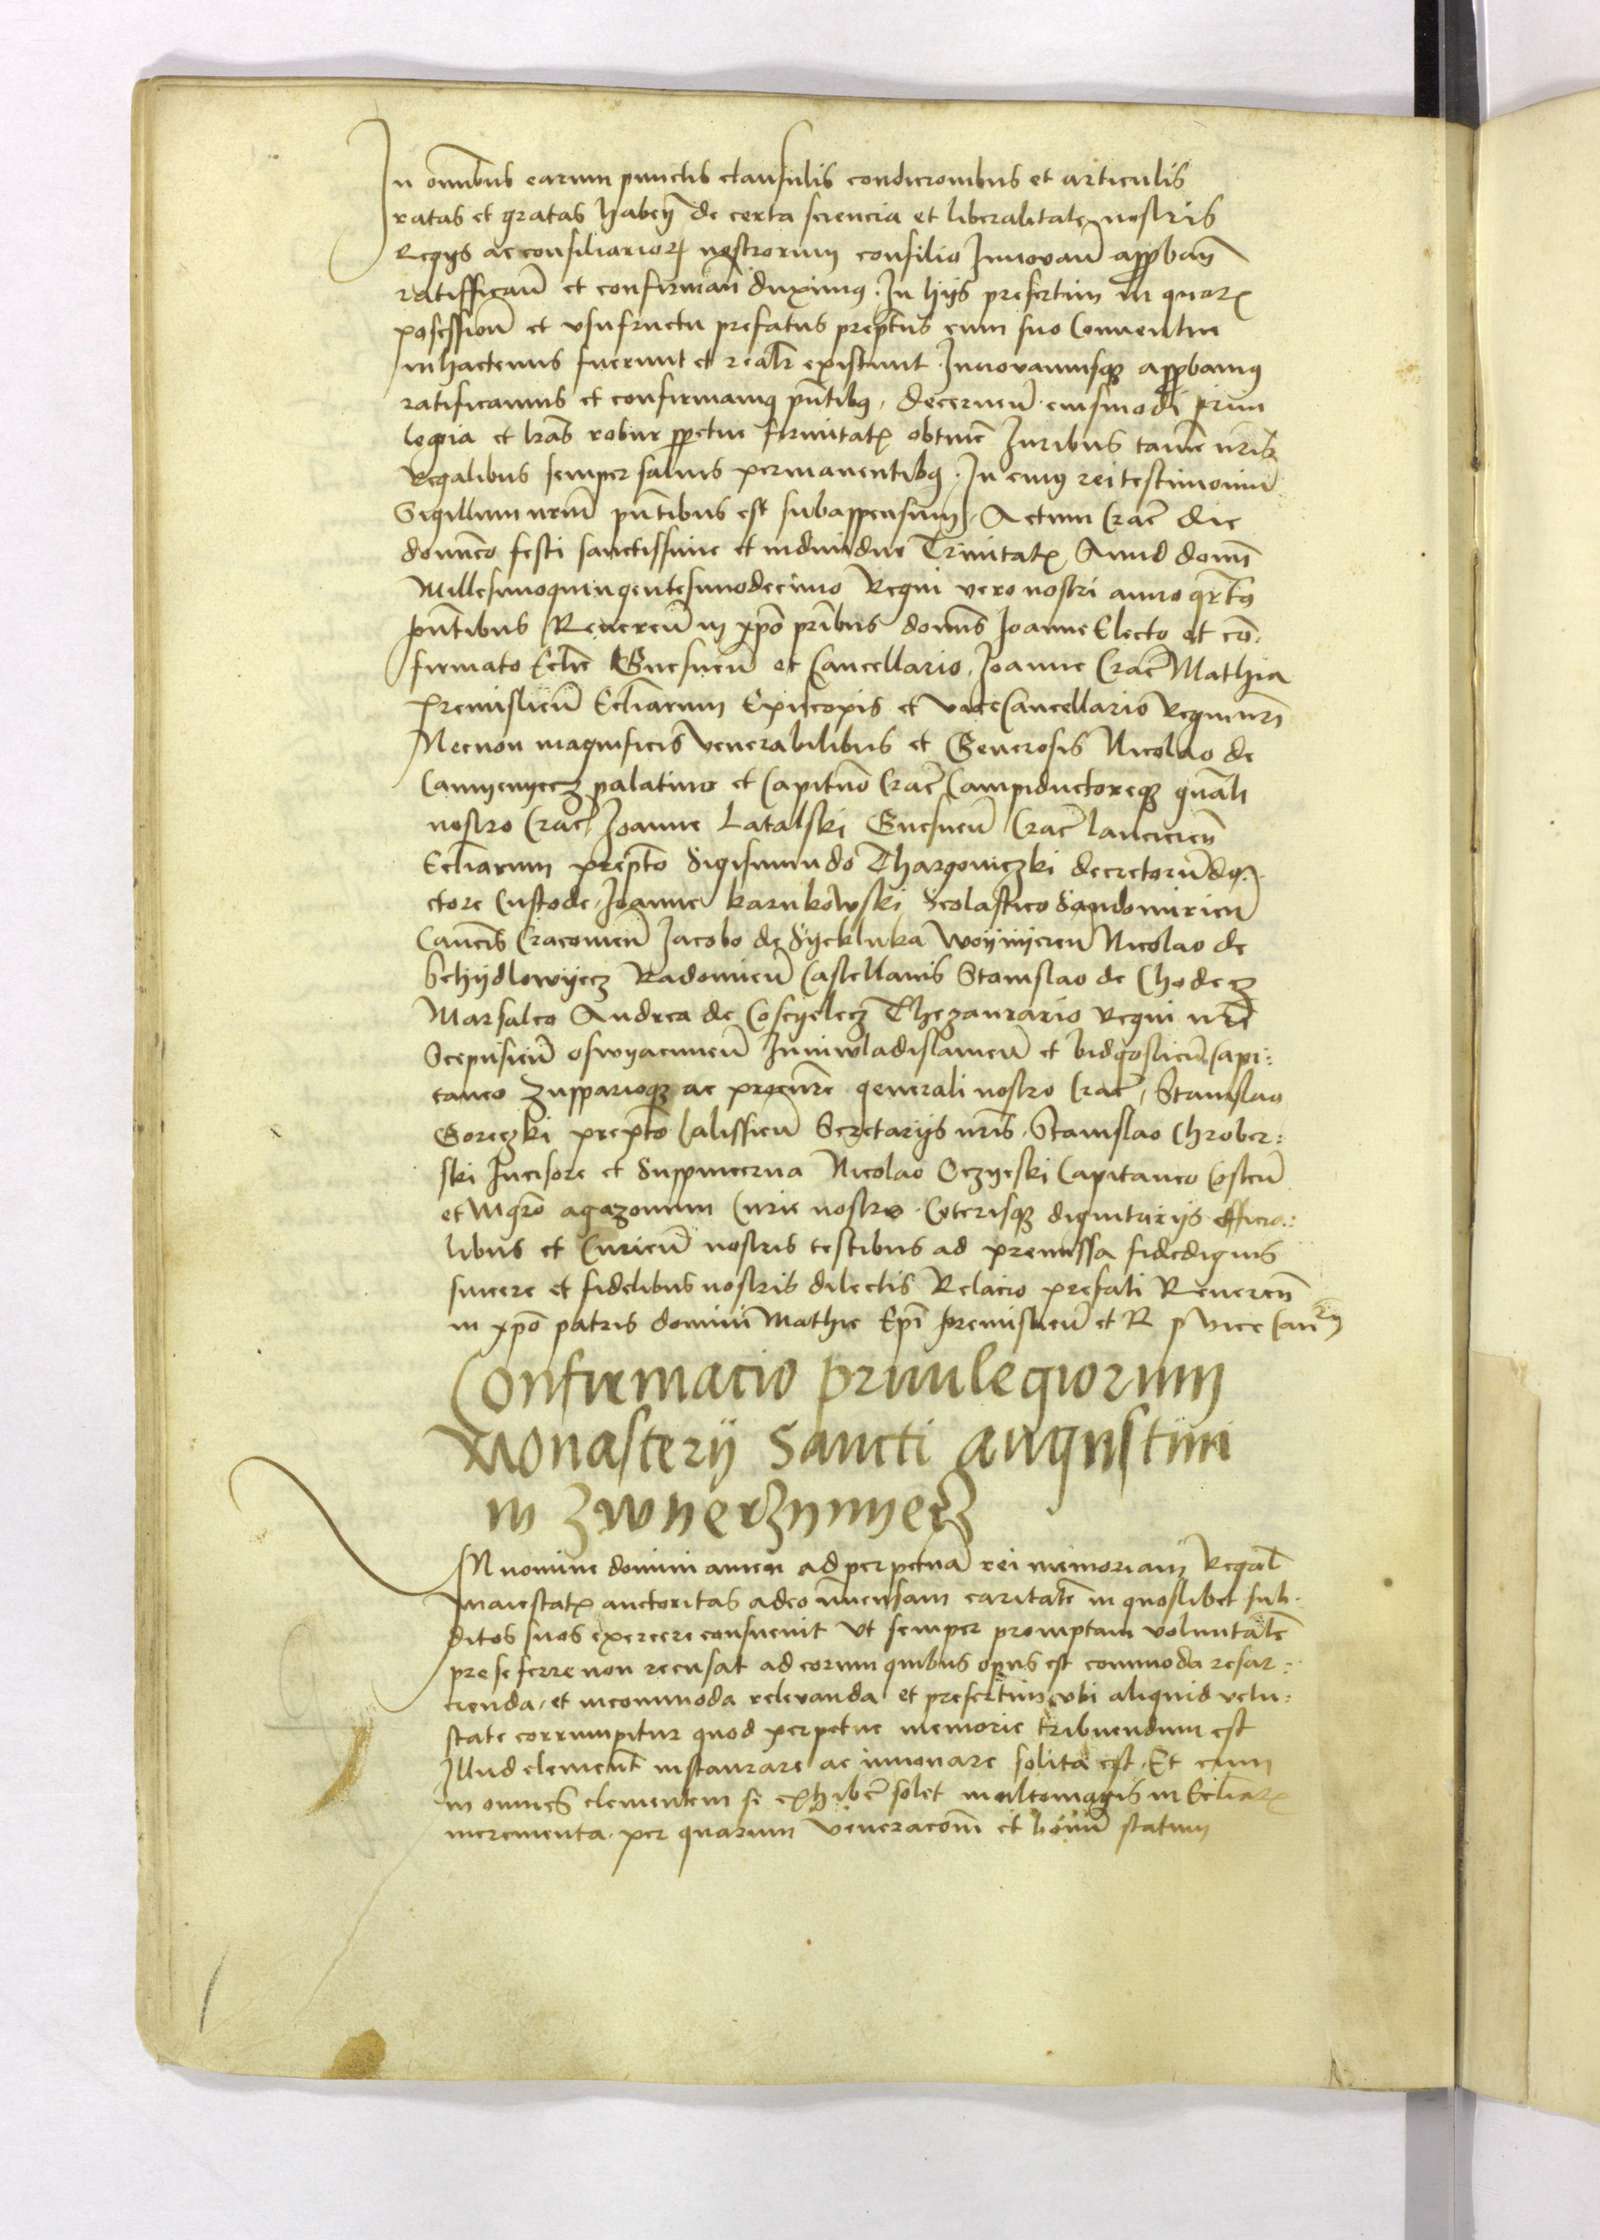 In omnibus earum punctis clausulis condicionibus et articulis
ratas et gratas haben̄ de certa sciencia et liberalitate nostris
Regys ac consiliarioꝝ nostrorum consilio Innovan̄ approban̄
ratifican̄ et confirman̄ duximus. In hijs presertim in quorꝫ
possession̄ et vsufructu prefatus prepts̄ cum suo Conventu
inhactenus fuerunt et realr̄ existunt. Innovamusqꝫ approbamus
ratificamus et confirmamus pn̄tibus, decernen̄ eiusmodi privi
legia et lrās robur perpetue firmitatꝭ obtinē Iuribus tamē nr̄is
Regalibus semper salvis permanentibus. In cuius rei testimoniū
Sigillum nrm̄ pn̄tibus est subappensum. Actum Crac̄ die
domīco festi sanctissime et individue Trinitatꝭ Anno domī
Millesimoquingentesimodecimo Regni vero nostri anno qrt̄o
pn̄tibus Reveren̄ in xp̄o prībus domīs Joanne Electo et cō-
firmato Ecclīe Gnesnen̄ et Cancellario, Joanne Crac̄ Mathia
Premislien̄ Ecclīarum Episcopis et viceCancellario Regni nrī
Necnon magnificis Venerabilibus et Generosis Nicolao de
Camyenyecz palatino et Capitn̄o Crac̄ Campiductoreqꝫ gnāli
nostro Crac̄, Joanne Latalski Gnesnen̄ Crac̄ lancicien̄
Ecclīarum prepto Sigismundo Thargoviczki decretorū do-
ctore Custode, Joanne karnkowski Scolastico Sandomirien̄
Canc̄is Cracovien̄ Jacobo de Syekluka woyniycen̄ Nicolao de
Schydlowyecz Radomien̄ Castellanis Stanislao de Chodecz
Marsalco Andrea de Coscyelecz Thezaurario Regni nrī
Scepusien̄ oswyacimen̄ Iuniwladislavien̄ et bidgostien̄ Capi:
taneo Zupparioqꝫ ac procurē generali nostro Crac̄, Stanislao
Gorczki prepto Calissien̄ Secretarijs nrīs, Stanislao Chrober:
ski Incisore et Suppincerna Nicolao Oczyeski Capitaneo Costen̄
et Mgrō agazonum Curie nostre. Ceterisqꝫ dignitarijs officia:
libus et Curien̄ nostris testibus ad premissa fidedignis
sincere et fidelibus nostris dilectis Relacio prefati Reveren̄
in xpō patris domini Mathie Epī Premislien̄ et R P vice Can
Confirmacio privilegiorum
Monasterij Sancti Augustini
in Zwyerzynyecz
IN nomine domini amen ad perpetuā rei memoriam Regal̄
maiestatꝭ auctoritas adeo īmensam caritatē in quoslibet sub-
ditos suos exercere consuevit Vt semper promptam voluntatē
prese ferre non recusat ad eorum quibus opus est commoda resar:
cienda, et incommoda relevanda et presertim vbi aliquid vetu:
state corrumpitur quod perpetue memorie tribuendum est
Illud clement̄ instaurare ac innovare solita est. Et cum
in omnes clementem se exhiberē solet multomagis in Ecclīarꝫ
incrementa, per quarum Veneracom̄ et bonū statum